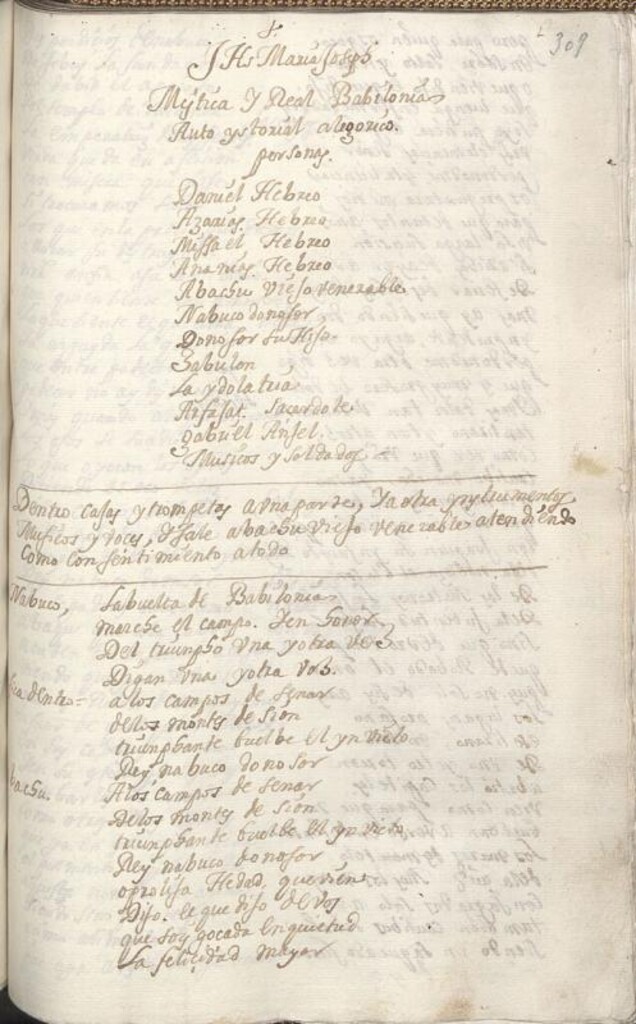 309
JHs Maria Joseph
Mÿtica Y Real Babilonia
Auto ystorial alegorico.
personas.
Daniel Hebreo
Azarias Hebreo
Missael Hebreo
Ananias Hebreo
Abachu viejo venerable
Nabucodonosor
Donosor su Hijo
Zabulon
La ydolatria
Arfasat. sacerdote
gabriel Anjel.
Musicos y soldados
Dentro cajas y trompetas a una parte, Y a otra ynstrumentos
Musicos y voces, y sale abachu viejo venerable atendiendo
Como con sentimiento a todo
Nabuco, La buelta de Babilonia
marche el campo. Y en honor
Del triumpho una y otra vez
Digan una y otra voz.
dentro = a los campos de senar
de los montes de sion
triunphante buelbe el ynvicto
Rey nabucodonosor
Abachu. A los campos de senar
De los montes de sion
triunphante buelbe el ynvicto
Rey nabucodonosor
o prolija Hedad, que bien
Dijo. el que dijo de vos
que soy gocada en quietud
La felicidad mayor